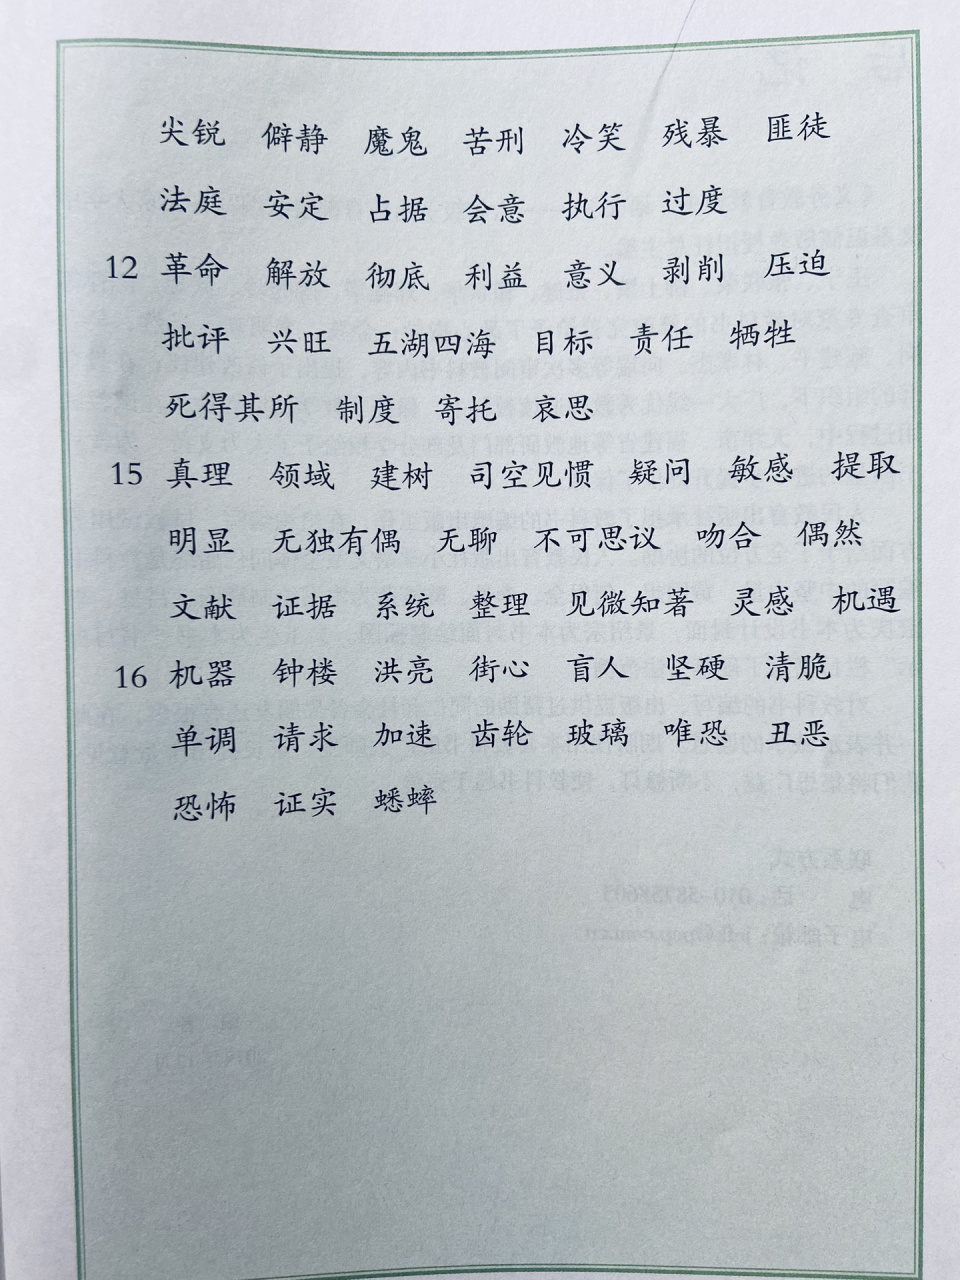 尖锐 僻静 魔鬼 苦刑 冷笑 残暴 匪徒
法庭 安定 占据 会意 执行 过度
12 革命 解放 彻底 利益 意义 剥削 压迫
批评 兴旺 五湖四海 目标 责任 牺牲
死得其所 制度 寄托 哀思
15 真理 领域 建树 司空见惯 疑问 敏感 提取
明显 无独有偶 无聊 不可思议 吻合 偶然
文献 证据 系统 整理 见微知著 灵感 机遇
16 机器 钟楼 洪亮 街心 盲人 坚硬 清脆
单调 请求 加速 齿轮 玻璃 唯恐 丑恶
恐怖 证实 蟋蟀